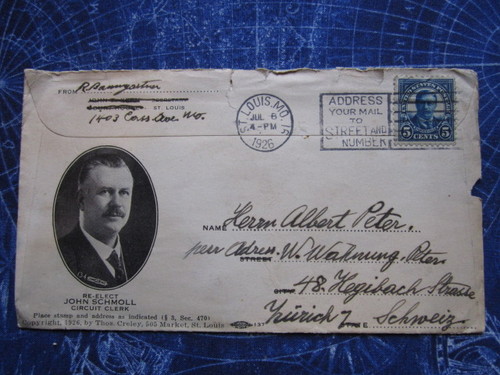 FROM R Baumgartner
ST. LOUIS
1403 Cass Ave Mo.
ST. LOUIS, MO. 15
JUL 6
4-PM
1926
ADDRESS
YOUR MAIL
TO
STREET AND
NUMBER
5 CENTS 5
NAME Herrn Albert Peter.
per Adress. W. Wohnung. Peter
STREET
48. Hegibach Strasse
Zürich 7 Schweiz
RE-ELECT
JOHN SCHMOLL
CIRCUIT CLERK
Place stamp and address as indicated (§ 3, Sec. 470)
Copyright, 1926, by Thos. Creley, 505 Market, St. Louis